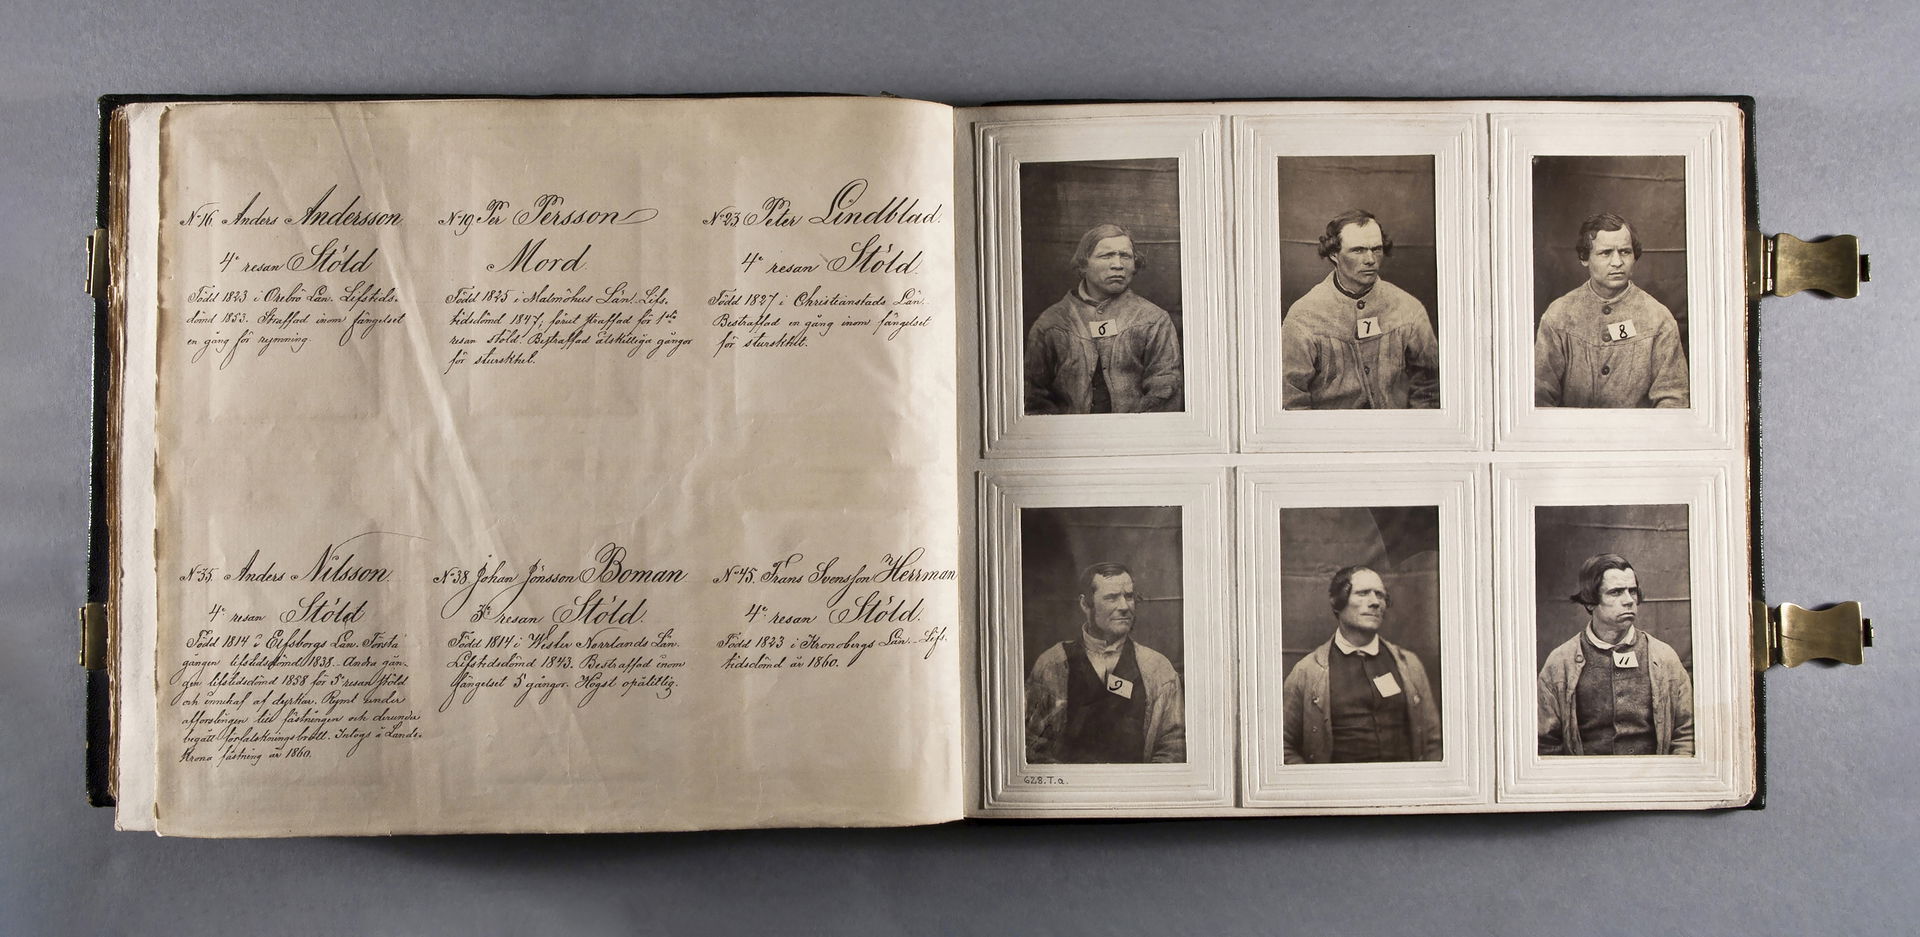 N° 16. Anders Andersson
4e resan Stöld
Född 1823 i Örebro Län. Lifstids-
dömd 1853. Straffad inom fängelset
en gång för rymning.
N° 19. Per Persson
Mord.
Född 1825 i Malmöhus Län. Lifs-
tidsdömd 1847; förut straffad för 1sta
resan stöld. Bestraffad åtskilliga gånger
för sturskhet.
N° 23. Peter Lindblad.
4e resan Stöld.
Född 1827 i Christianstads Län.
Bestraffad en gång inom fängelset
för sturskhet.
N° 35. Anders Nilsson.
4e resan Stöld
Född 1814 i Elfsborgs Län. Första
gången lifstidsdömd 1838. Andra gån-
gen lifstidsdömd 1858 för 5e resan stöld
och innehaf af dyrkar. Rymt under
afforslingen till fästningen och derunder
begått förfalskningsbrott. Intogs å Lands-
krona fästning år 1860.
N° 38. Johan Jönsson Boman
3e resan Stöld.
Född 1814 i Wester Norrlands Län.
Lifstidsdömd 1843. Bestraffad inom
fängelset 5 gångor. Högst opålitlig.
N° 45. Frans Svensson Herrman
4e resan Stöld.
Född 1823 i Kronobergs Län. Lifs-
tidsdömd år 1860.
6
7
8
9
11
628.T.a.